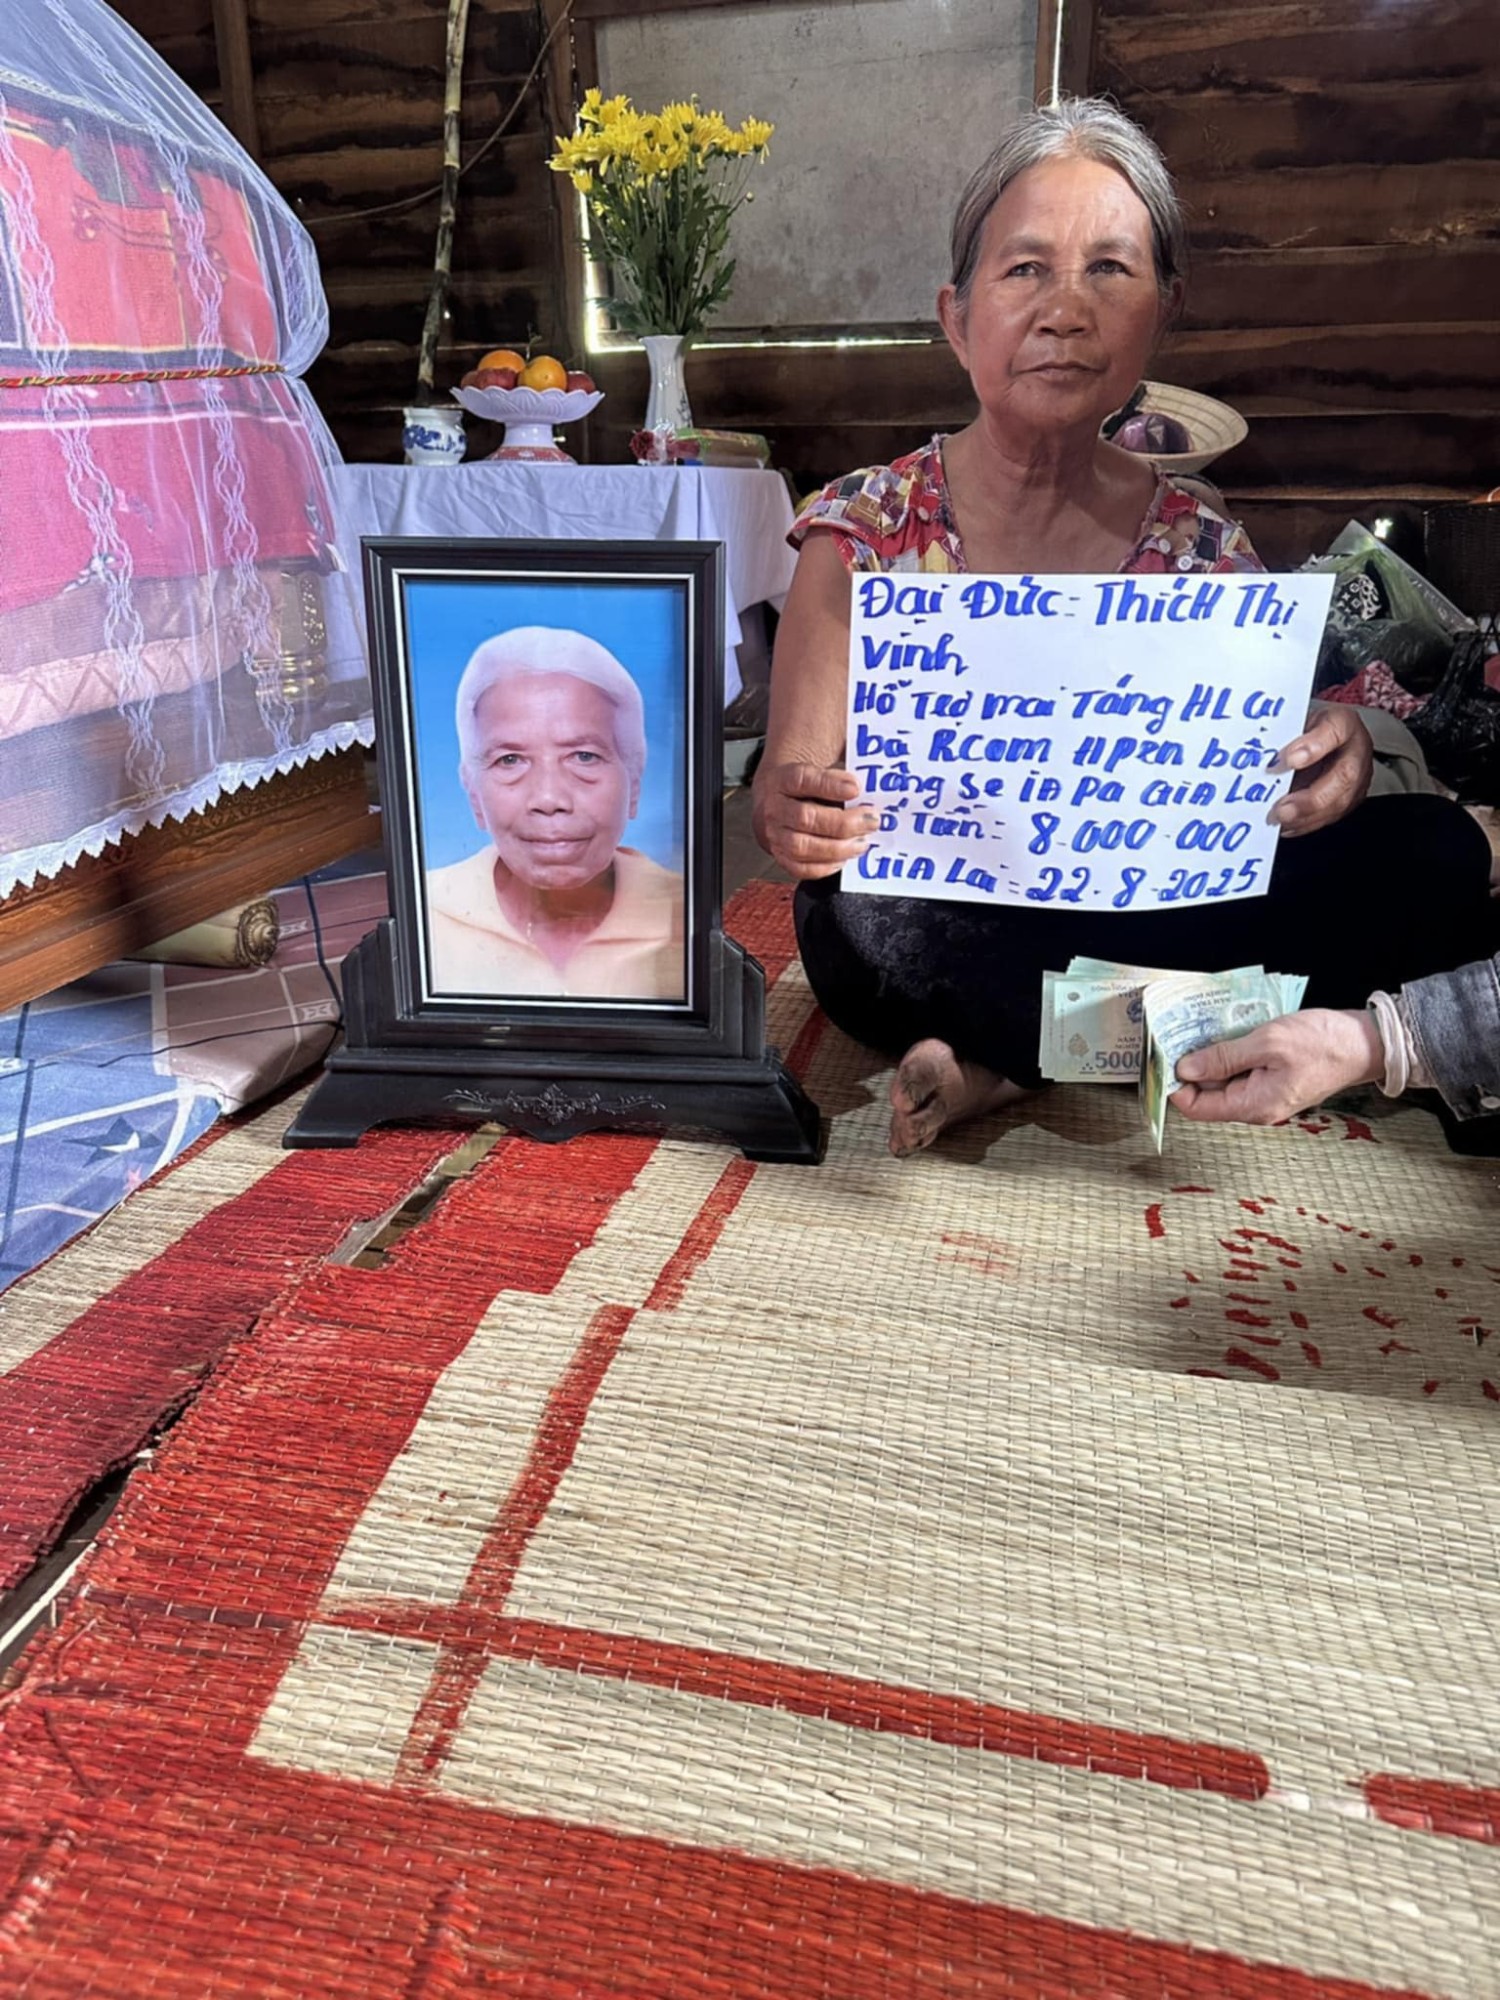 Đại Đức: Thích Thị
Vinh
Hỗ Trợ mai Táng HL Cụ
bà RCom HPen bôn
Tông Se IA Pa GiA Lai
Số Tiền: 8.000.000
GiA Lai: 22.8.2025
5000